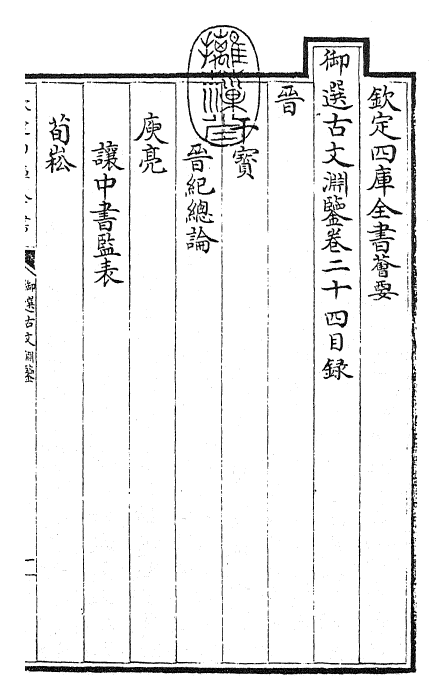 欽定四庫全書薈要
御選古文淵鑒卷二十四目録
晉
干寳
晉紀總論
庾亮
讓中書監表
荀崧
御選古文淵鑒
一